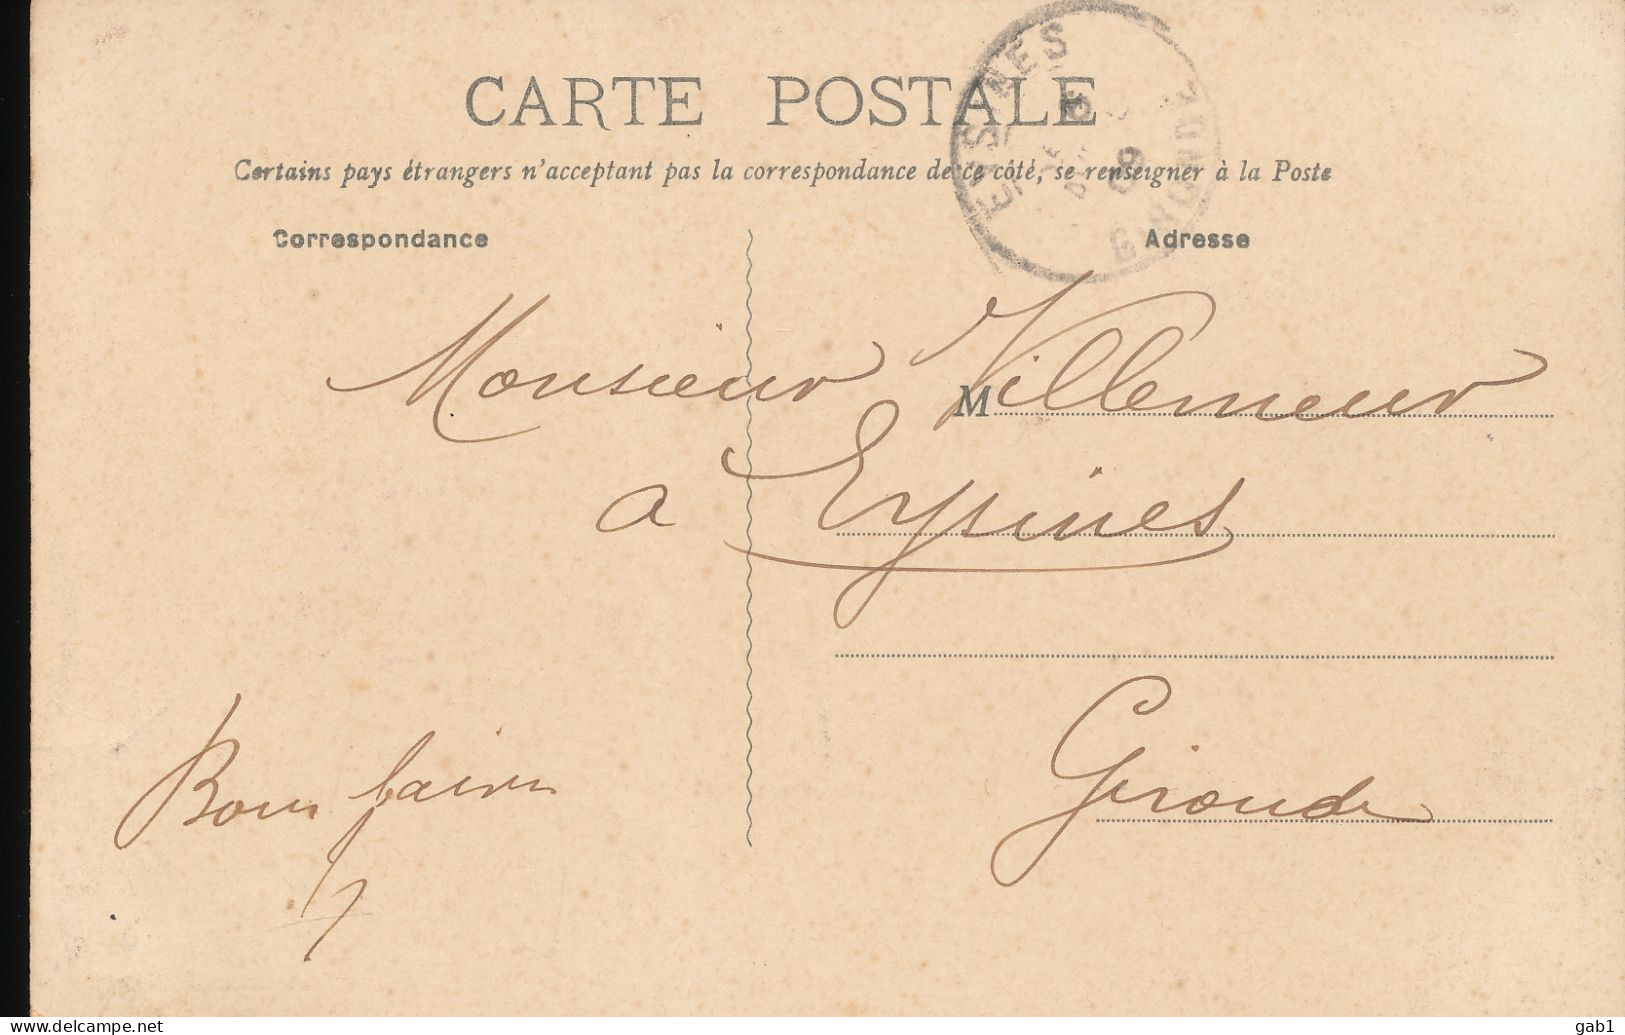 CARTE POSTALE
Certains pays étrangers n'acceptant pas la correspondance de ce côté, se renseigner à la Poste
Correspondance
Adresse
EYSINES
09
GIRONDE
Monsieur M Villemeur
a Eysines
Gironde
Bon
www.delcampe.net
gab1